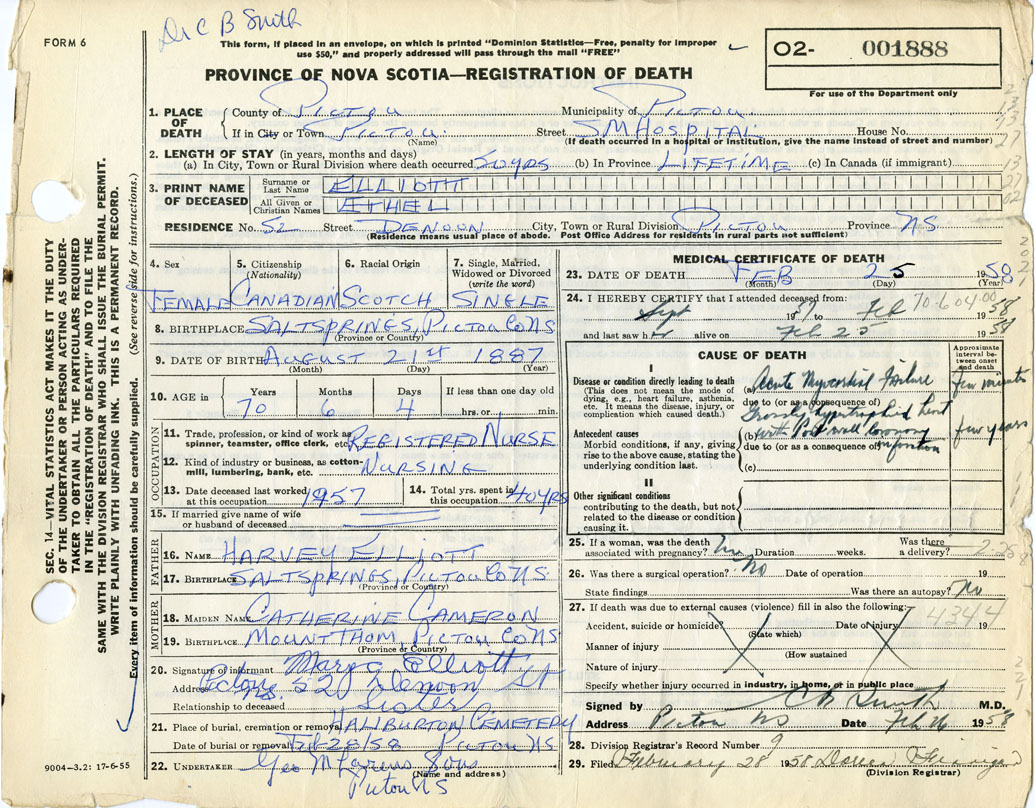 Dr C B Smith
FORM 6
This form, if placed in an envelope, on which is printed "Dominion Statistics—Free, penalty for improper
use $50," and properly addressed will pass through the mail "FREE"
O2- 001888
For use of the Department only
PROVINCE OF NOVA SCOTIA—REGISTRATION OF DEATH
1. PLACE OF DEATH County of PICTOU Municipality of PICTOU
If in City or Town PICTOU Street SM HOSPITAL House No.
(Name) (If death occurred in a hospital or institution, give the name instead of street and number)
2. LENGTH OF STAY (in years, months and days)
(a) In City, Town or Rural Division where death occurred 50 yrs (b) In Province LIFETIME (c) In Canada (if immigrant)
3. PRINT NAME OF DECEASED Surname or Last Name ELLIOTT
All Given or Christian Names ETHEL
RESIDENCE No. 52 Street DENOON City, Town or Rural Division PICTOU Province N.S.
(Residence means usual place of abode. Post Office Address for residents in rural parts not sufficient)
4. Sex 5. Citizenship (Nationality) 6. Racial Origin 7. Single, Married, Widowed or Divorced (write the word)
FEMALE CANADIAN SCOTCH SINGLE
8. BIRTHPLACE SALTSPRINGS, PICTOU CO NS
(Province or Country)
9. DATE OF BIRTH AUGUST 21st 1887
(Month) (Day) (Year)
10. AGE in Years Months Days If less than one day old
70 6 4 hrs. or min.
OCCUPATION
11. Trade, profession, or kind of work as spinner, teamster, office clerk, etc. REGISTERED NURSE
12. Kind of industry or business, as cotton-mill, lumbering, bank, etc. NURSING
13. Date deceased last worked at this occupation 1957 14. Total yrs. spent in this occupation 40 yrs
15. If married give name of wife or husband of deceased
FATHER
16. NAME HARVEY ELLIOTT
17. BIRTHPLACE SALTSPRINGS, PICTOU CO NS
(Province or Country)
MOTHER
18. MAIDEN NAME CATHERINE CAMERON
19. BIRTHPLACE MOUNT THOM, PICTOU CO NS
(Province or Country)
20. Signature of informant Mary C Elliott
Address Pictou NS. 52 Denoon St
Relationship to deceased Sister
21. Place of burial, cremation or removal HALIBURTON CEMETERY
Date of burial or removal Feb 28/58 PICTOU NS
22. UNDERTAKER Geo M Sons
(Name and address)
Pictou NS
MEDICAL CERTIFICATE OF DEATH
23. DATE OF DEATH FEB 25 1958
(Month) (Day) (Year)
24. I HEREBY CERTIFY that I attended deceased from:
70-6-04-00
Sept 1957 to Feb 1958
and last saw h alive on Feb 25 1958
CAUSE OF DEATH
Approximate interval between onset and death
I
Disease or condition directly leading to death
(This does not mean the mode of dying, e.g., heart failure, asthenia, etc. It means the disease, injury, or complication which caused death.)
(a) Acute Myocardial Failure few minutes
due to (or as a consequence of)
Antecedent causes
Morbid conditions, if any, giving rise to the above cause, stating the underlying condition last.
Grossly hypertrophied heart
(b) with Post wall Coronary few years
due to (or as a consequence of) infarction
(c)
II
Other significant conditions contributing to the death, but not related to the disease or condition causing it.
25. If a woman, was the death associated with pregnancy? No Duration weeks. Was there a delivery?
26. Was there a surgical operation? No Date of operation 19
State findings Was there an autopsy? No
27. If death was due to external causes (violence) fill in also the following:
4344
Accident, suicide or homicide (State which) Date of injury 19
Manner of injury (How sustained
Nature of injury
Specify whether injury occurred in industry, in home, or in public place
Signed by C B Smith M.D.
Address Pictou NS Date Feb 26 1958
28. Division Registrar's Record Number 9
29. Filed February 28 1958 Doreen
(Division Registrar)
SEC. 14—VITAL STATISTICS ACT MAKES IT THE DUTY
OF THE UNDERTAKER OR PERSON ACTING AS UNDER-
TAKER TO OBTAIN ALL THE PARTICULARS REQUIRED
IN THE "REGISTRATION OF DEATH" AND TO FILE THE
SAME WITH THE DIVISION REGISTRAR WHO SHALL ISSUE THE BURIAL PERMIT.
WRITE PLAINLY WITH UNFADING INK. THIS IS A PERMANENT RECORD.
Every item of information should be carefully supplied. (See reverse side for instructions.)
9004-3.2: 17-6-55